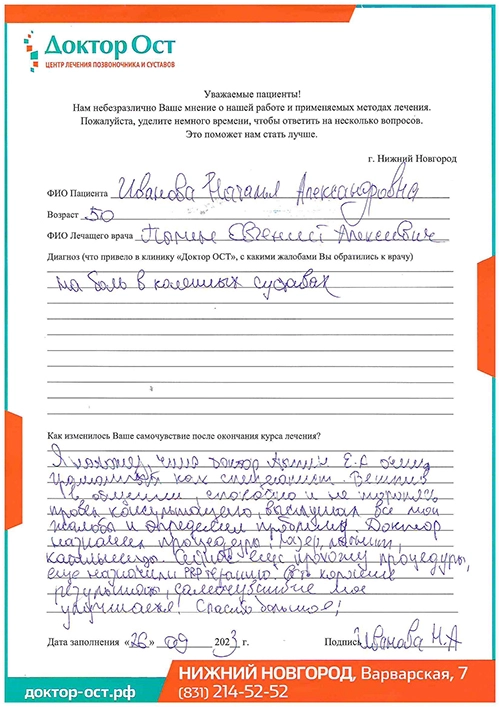 Доктор Ост
ЦЕНТР ЛЕЧЕНИЯ ПОЗВОНОЧНИКА И СУСТАВОВ
Уважаемые пациенты!
Нам небезразлично Ваше мнение о нашей работе и применяемых методах лечения.
Пожалуйста, уделите немного времени, чтобы ответить на несколько вопросов.
Это поможет нам стать лучше.
г. Нижний Новгород
ФИО Пациента Иванова Наталья Александровна
Возраст 50
ФИО Лечащего врача Евгений Алексеевич
Диагноз (что привело в клинику «Доктор ОСТ», с какими жалобами Вы обратились к врачу)
на боль в коленных суставах
Как изменилось Ваше самочувствие после окончания курса лечения?
Я нахожу, что доктор Е.А очень
грамотный как специалист. Вежлив
в общении, спокойно и не торопясь
провел консультацию, выслушал все мои
жалобы и определил проблему. Доктор
назначил процедуры, лазер, магнит,
капельницы. Сейчас еще прохожу процедуры,
еще назначили PRP терапию. Есть хорошие
результаты, самочувствие мое
улучшается! Спасибо большое!
Дата заполнения «26» 09 2023 г. Подпись Иванова Н.А
НИЖНИЙ НОВГОРОД, Варварская, 7
доктор-ост.рф (831) 214-52-52